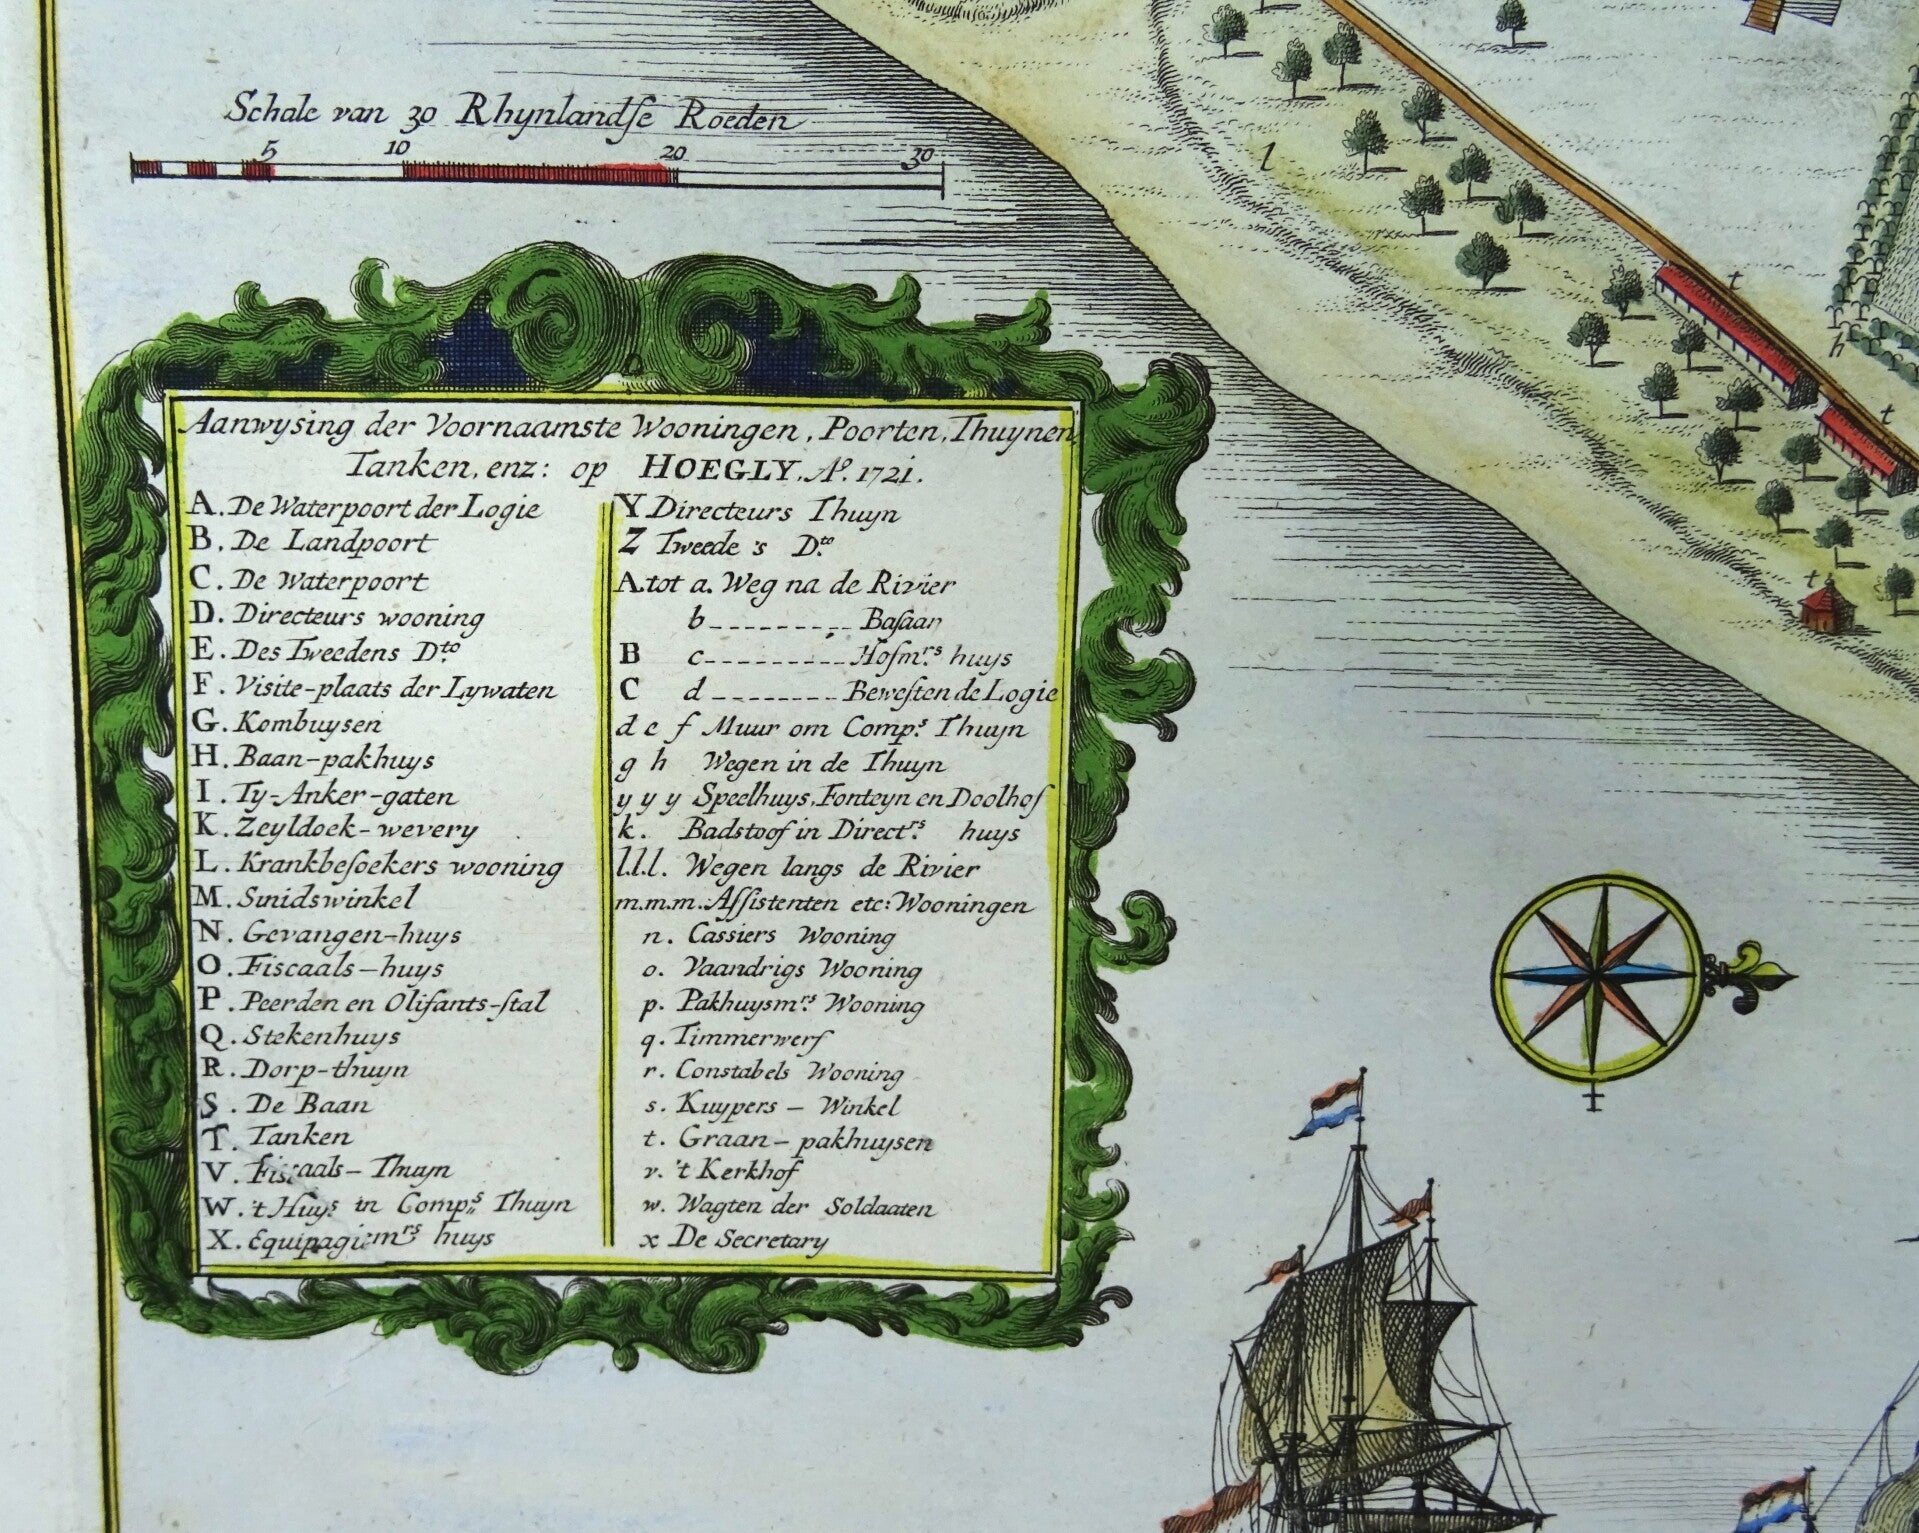 Schale van 30 Rhynlandse Roeden
5 10 20 30
l
t
h
t
t
Aanwysing der Voornaamste Wooningen, Poorten, Thuynen,
Tanken, enz: op HOEGLY, Aº. 1721.
A. De Waterpoort der Logie
B. De Landpoort
C. De Waterpoort
D. Directeurs wooning
E. Des Tweedens Dto
F. Visite-plaats der Lywaten
G. Kombuysen
H. Baan-pakhuys
I. Ty-Anker-gaten
K. Zeyldoek-wevery
L. Krankbesoekers wooning
M. Smidswinkel
N. Gevangen-huys
O. Fiscaals-huys
P. Peerden en Olifants-stal
Q. Stekenhuys
R. Dorp-thuyn
S. De Baan
T. Tanken
V. Fiscaals-Thuyn
W. 't Huys in Comps Thuyn
X. Equipagiemrs huys
Y Directeurs Thuyn
Z Tweede 's Dto
A. tot a. Weg na de Rivier
b --------- Basaan
B c --------- Hofmrs huys
C d -------- Bewesten de Logie
d e f Muur om Comps Thuyn
g h Wegen in de Thuyn
y y y Speelhuys, Fonteyn en Doolhof
k. Badstoof in Directrs huys
l.l.l. Wegen langs de Rivier
m.m.m. Assistenten etc: Wooningen
n. Cassiers Wooning
o. Vaandrigs Wooning
p. Pakhuysmrs Wooning
q. Timmerwerf
r. Constabels Wooning
s. Kuypers - Winkel
t. Graan-pakhuysen
v. 't Kerkhof
w. Wagten der Soldaaten
x De Secretary